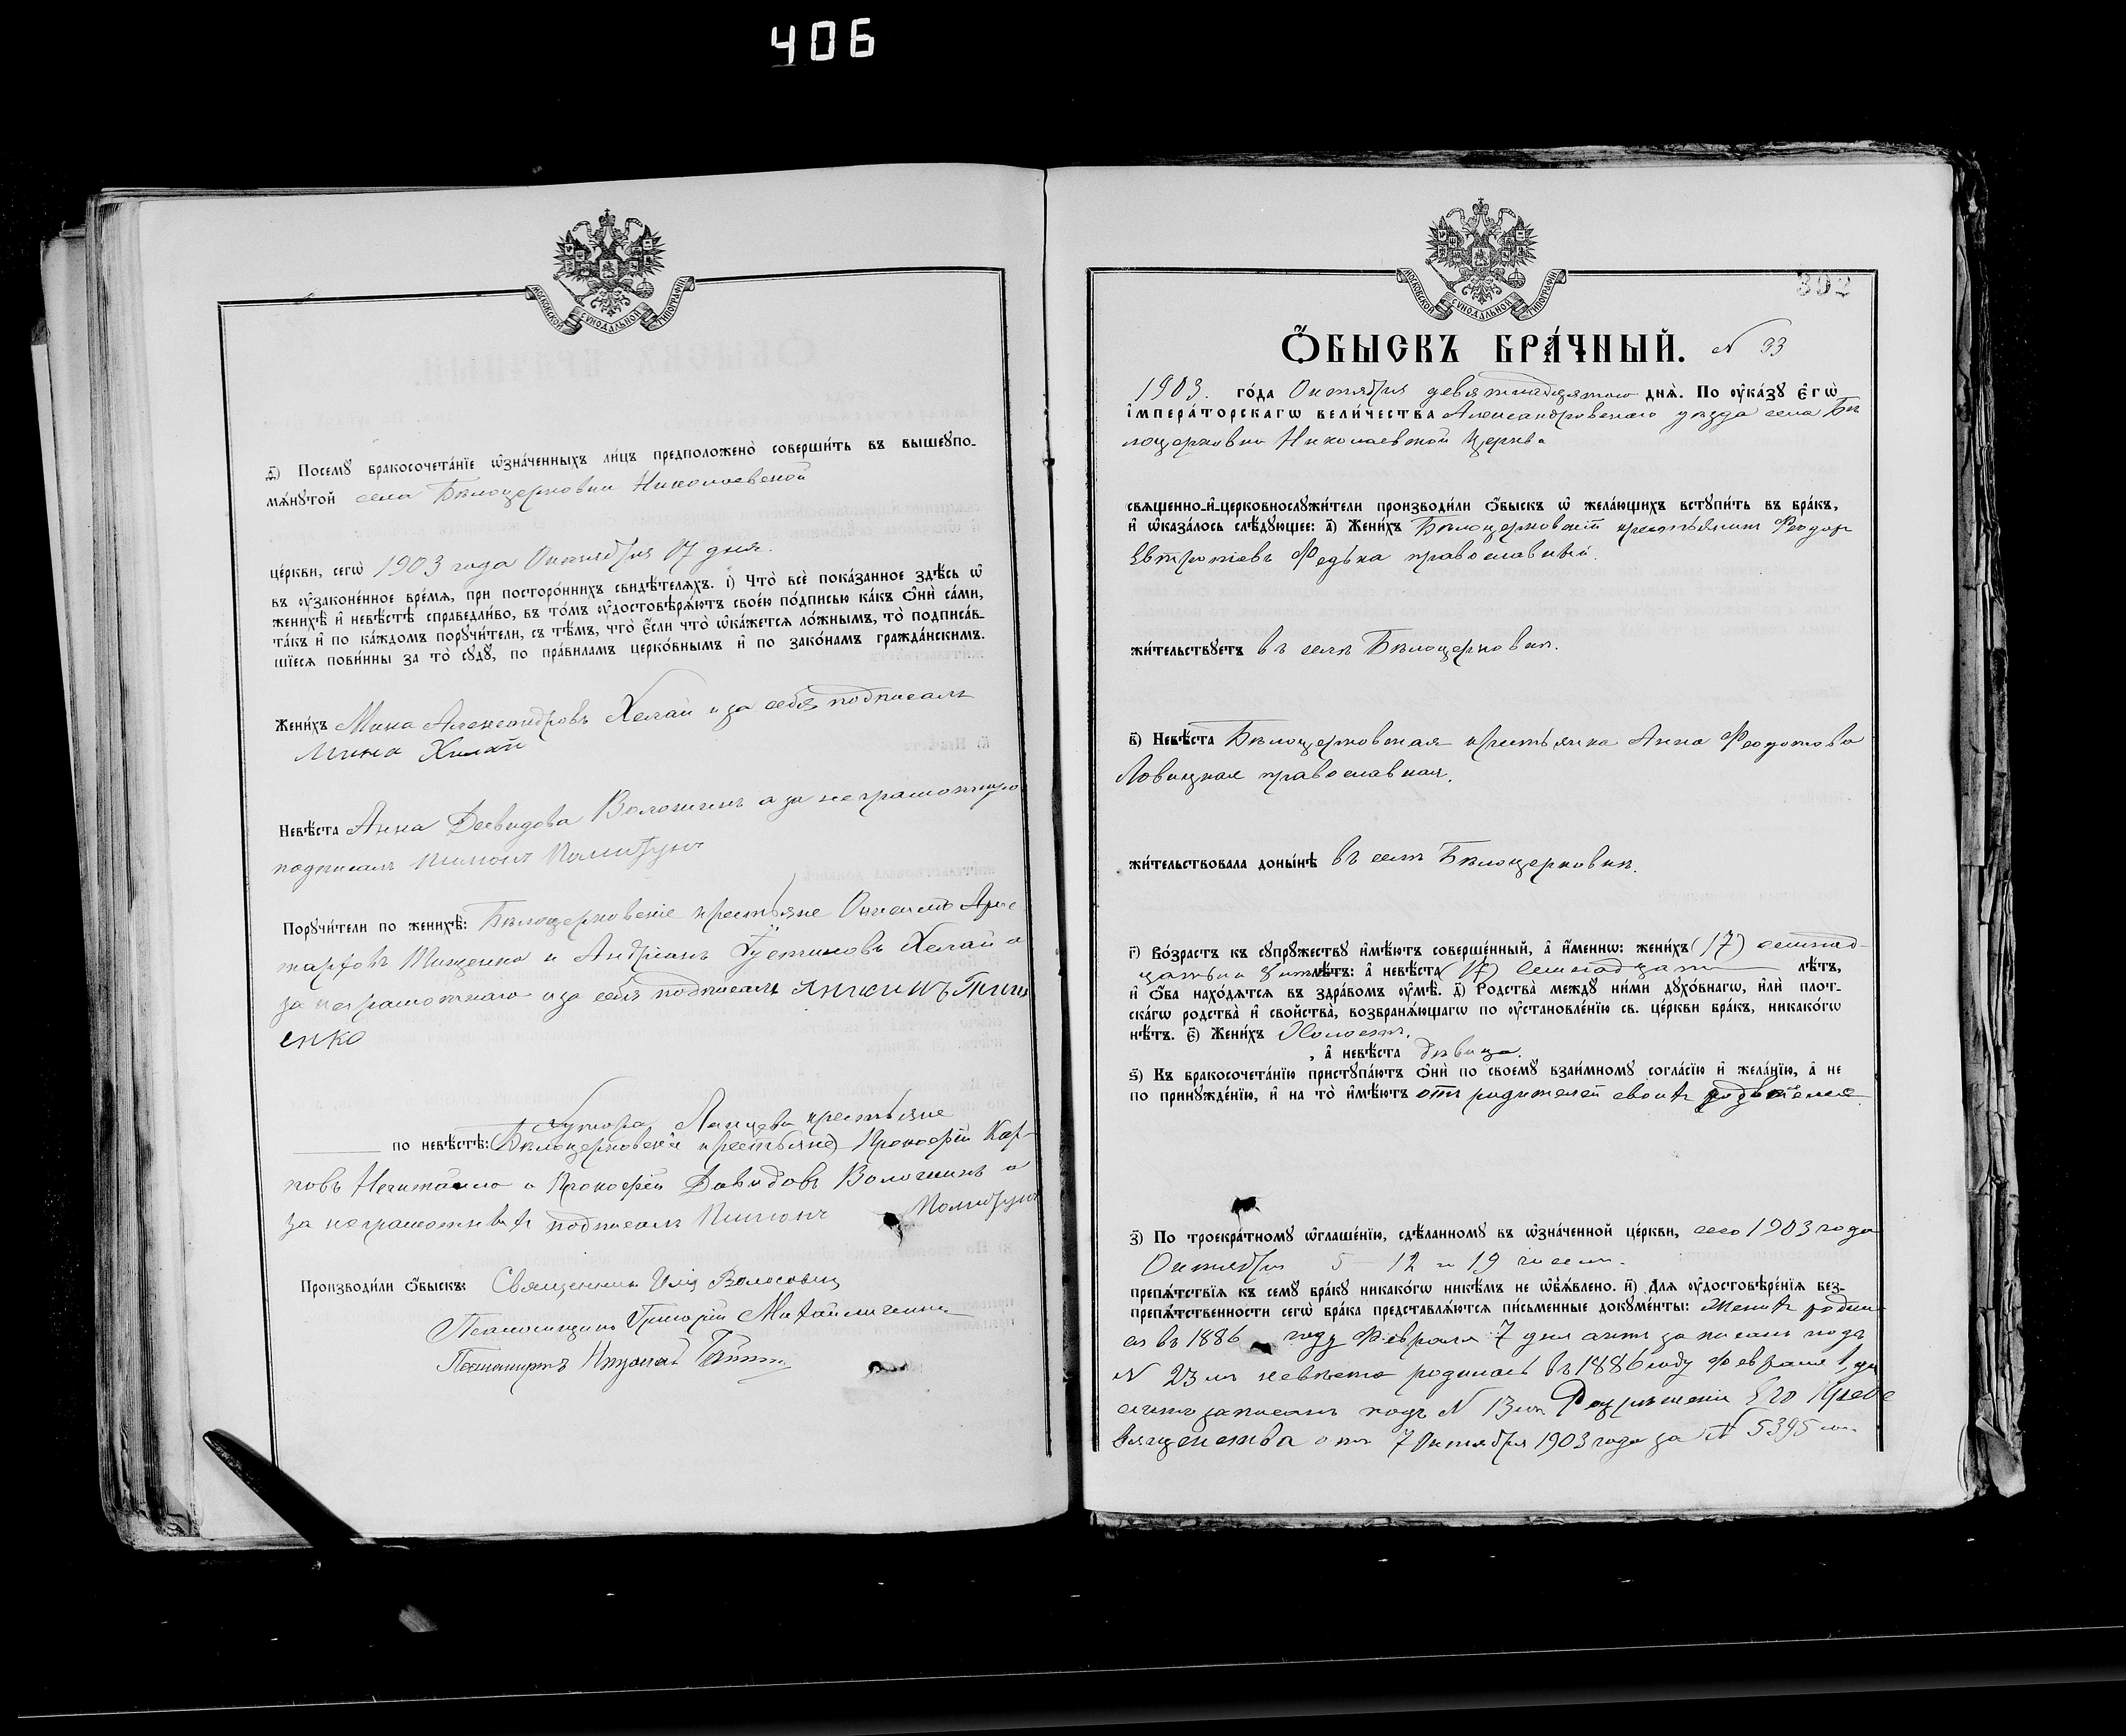 406
МОСКОВСКОЙ СѴНОДАЛЬНОЙ ТИПОГРАФІИ
ѳ҃) Посемꙋ бракосочета́нїе ѡ҆зна́ченныхъ ли́цъ предположено̀ соверши́ть въ вышеꙋпо-
мѧ́нꙋтой села Бѣлоцерковки Николаевской
це́ркви, сегѡ̀ 1903 года Октября 17 дня.
въ ѹ҆законе́нное вре́мѧ, при посторо́ннихъ свидѣ́телѧхъ. і҃) Что̀ всѐ пока́занное здѣ́сь ѡ҆
женихѣ̀ и҆ невѣ́стѣ справедли́во, въ то́мъ ѹ҆достовѣрѧ́ютъ свое́ю по́дписью ка́къ ѻ҆нѝ са́ми,
та́къ и҆ по ка́ждомъ порꙋчи́тели, съ тѣ́мъ, что̀ є҆́сли что̀ ѡ҆ка́жетсѧ ло́жнымъ, то̀ подписа́в-
шїесѧ пови́нны за то̀ сꙋдꙋ̀, по пра́виламъ церко́внымъ и҆ по зако́намъ гражда́нскимъ.
Жени́хъ Мина Александровъ Хелай и за себя подписалъ
Мина Хилай
Невѣ́ста Анна Давидова Волошинъ а за неграмотную
подписалъ Пимонъ
Порꙋчи́тели по женихѣ̀: Бѣлоцерковскіе крестьяне
Тищенко и Андріанъ Устиновъ Хелай а
за неграмотнаго и за себя подписалъ
енко
Хутора крестьяне
по невѣ́стѣ: (Бѣлоцерковскіе крестьяне) Прокофій Кар-
повъ Нечитайло и Прокофій Давидовъ Волошинъ а
за неграмотныхъ подписалъ Пимонъ
Производи́ли ѻ҆́быскъ: Священникъ Илія Волосовъ
Псаломщикъ Григорій Михайличенко
Николай
МОСКОВСКОЙ СѴНОДАЛЬНОЙ ТИПОГРАФІИ
302
Ѻ҆́БЫСКЪ БРА́ЧНЫЙ. N 93
1903. го́да Октября девятнадцатаго днѧ̀. По ѹ҆ка́зꙋ є҆гѡ̀
і҆мпера́торскагѡ вели́чества Александровскаго уѣзда села Бѣ
лоцерковки Николаевской Церкви
свѧще́нно-и҆-церковнослꙋжи́тели производи́ли ѻ҆́быскъ ѡ҆ жела́ющихъ встꙋпи́ть въ бра́къ,
и҆ ѡ҆каза́лось слѣ́дꙋющее: а҃) Жени́хъ Бѣлоцерковскій крестьянинъ Феодоръ
Евтропіевъ Федька православный.
жи́тельствꙋетъ въ селѣ Бѣлоцерковкѣ.
в҃) Невѣ́ста Бѣлоцерковская крестьянка Анна Феодотова
Ловицкая православная.
жи́тельствовала доны́нѣ въ селѣ Бѣлоцерковкѣ.
г҃) Во́зрастъ къ сꙋпрꙋ́жествꙋ и҆мѣ́ютъ соверше́нный, а҆ и҆́меннѡ: жени́хъ (17) семнад-
цатый лѣ́тъ: а҆ невѣ́ста (17) Семнадцать лѣ́тъ,
и҆ ѻ҆́ба нахо́дѧтсѧ въ здра́вомъ ѹ҆мѣ̀. д҃) Родства̀ междꙋ̀ ни́ми дꙋхо́внагѡ, и҆лѝ плот-
ска́гѡ родства̀ и҆ свойства̀, возбранѧ́ющагѡ по ѹ҆становле́нїю св. це́ркви бра́къ, никако́гѡ
нѣ́тъ. є҃) Жени́хъ Холостъ.
, а҆ невѣ́ста дѣвица.
ѕ҃) Къ бракосочета́нїю пристꙋпа́ютъ ѻ҆нѝ по своемꙋ̀ взаи́мномꙋ согла́сїю и҆ жела́нїю, а҆ не
по принꙋжде́нїю, и҆ на то̀ и҆мѣ́ютъ отъ родителей своихъ
з҃) По троекра́тномꙋ ѡ҆глаше́нїю, сдѣ́ланномꙋ въ ѡ҆зна́ченной це́ркви, сего 1903 года
Октября 5 12 и 19 чиселъ.
препѧ́тствїѧ къ семꙋ̀ бра́кꙋ никако́гѡ никѣ́мъ не ѡ҆б̾ѧ́влено. и҃) Длѧ ѹ҆достовѣре́нїѧ без-
препѧ́тственности сегѡ̀ бра́ка представлѧ́ютсѧ пи́сьменные докꙋме́нты: женихъ родил
ся въ 1886 году Февраля 7 дня актъ записанъ подъ
N 23 мъ невѣста родилась въ 1886 году Февраля 1 дня
актъ записанъ подъ N 13 мъ Разрѣшеніе Его Прео
священства отъ 7 Октября 1903 года за N 5395 мъ